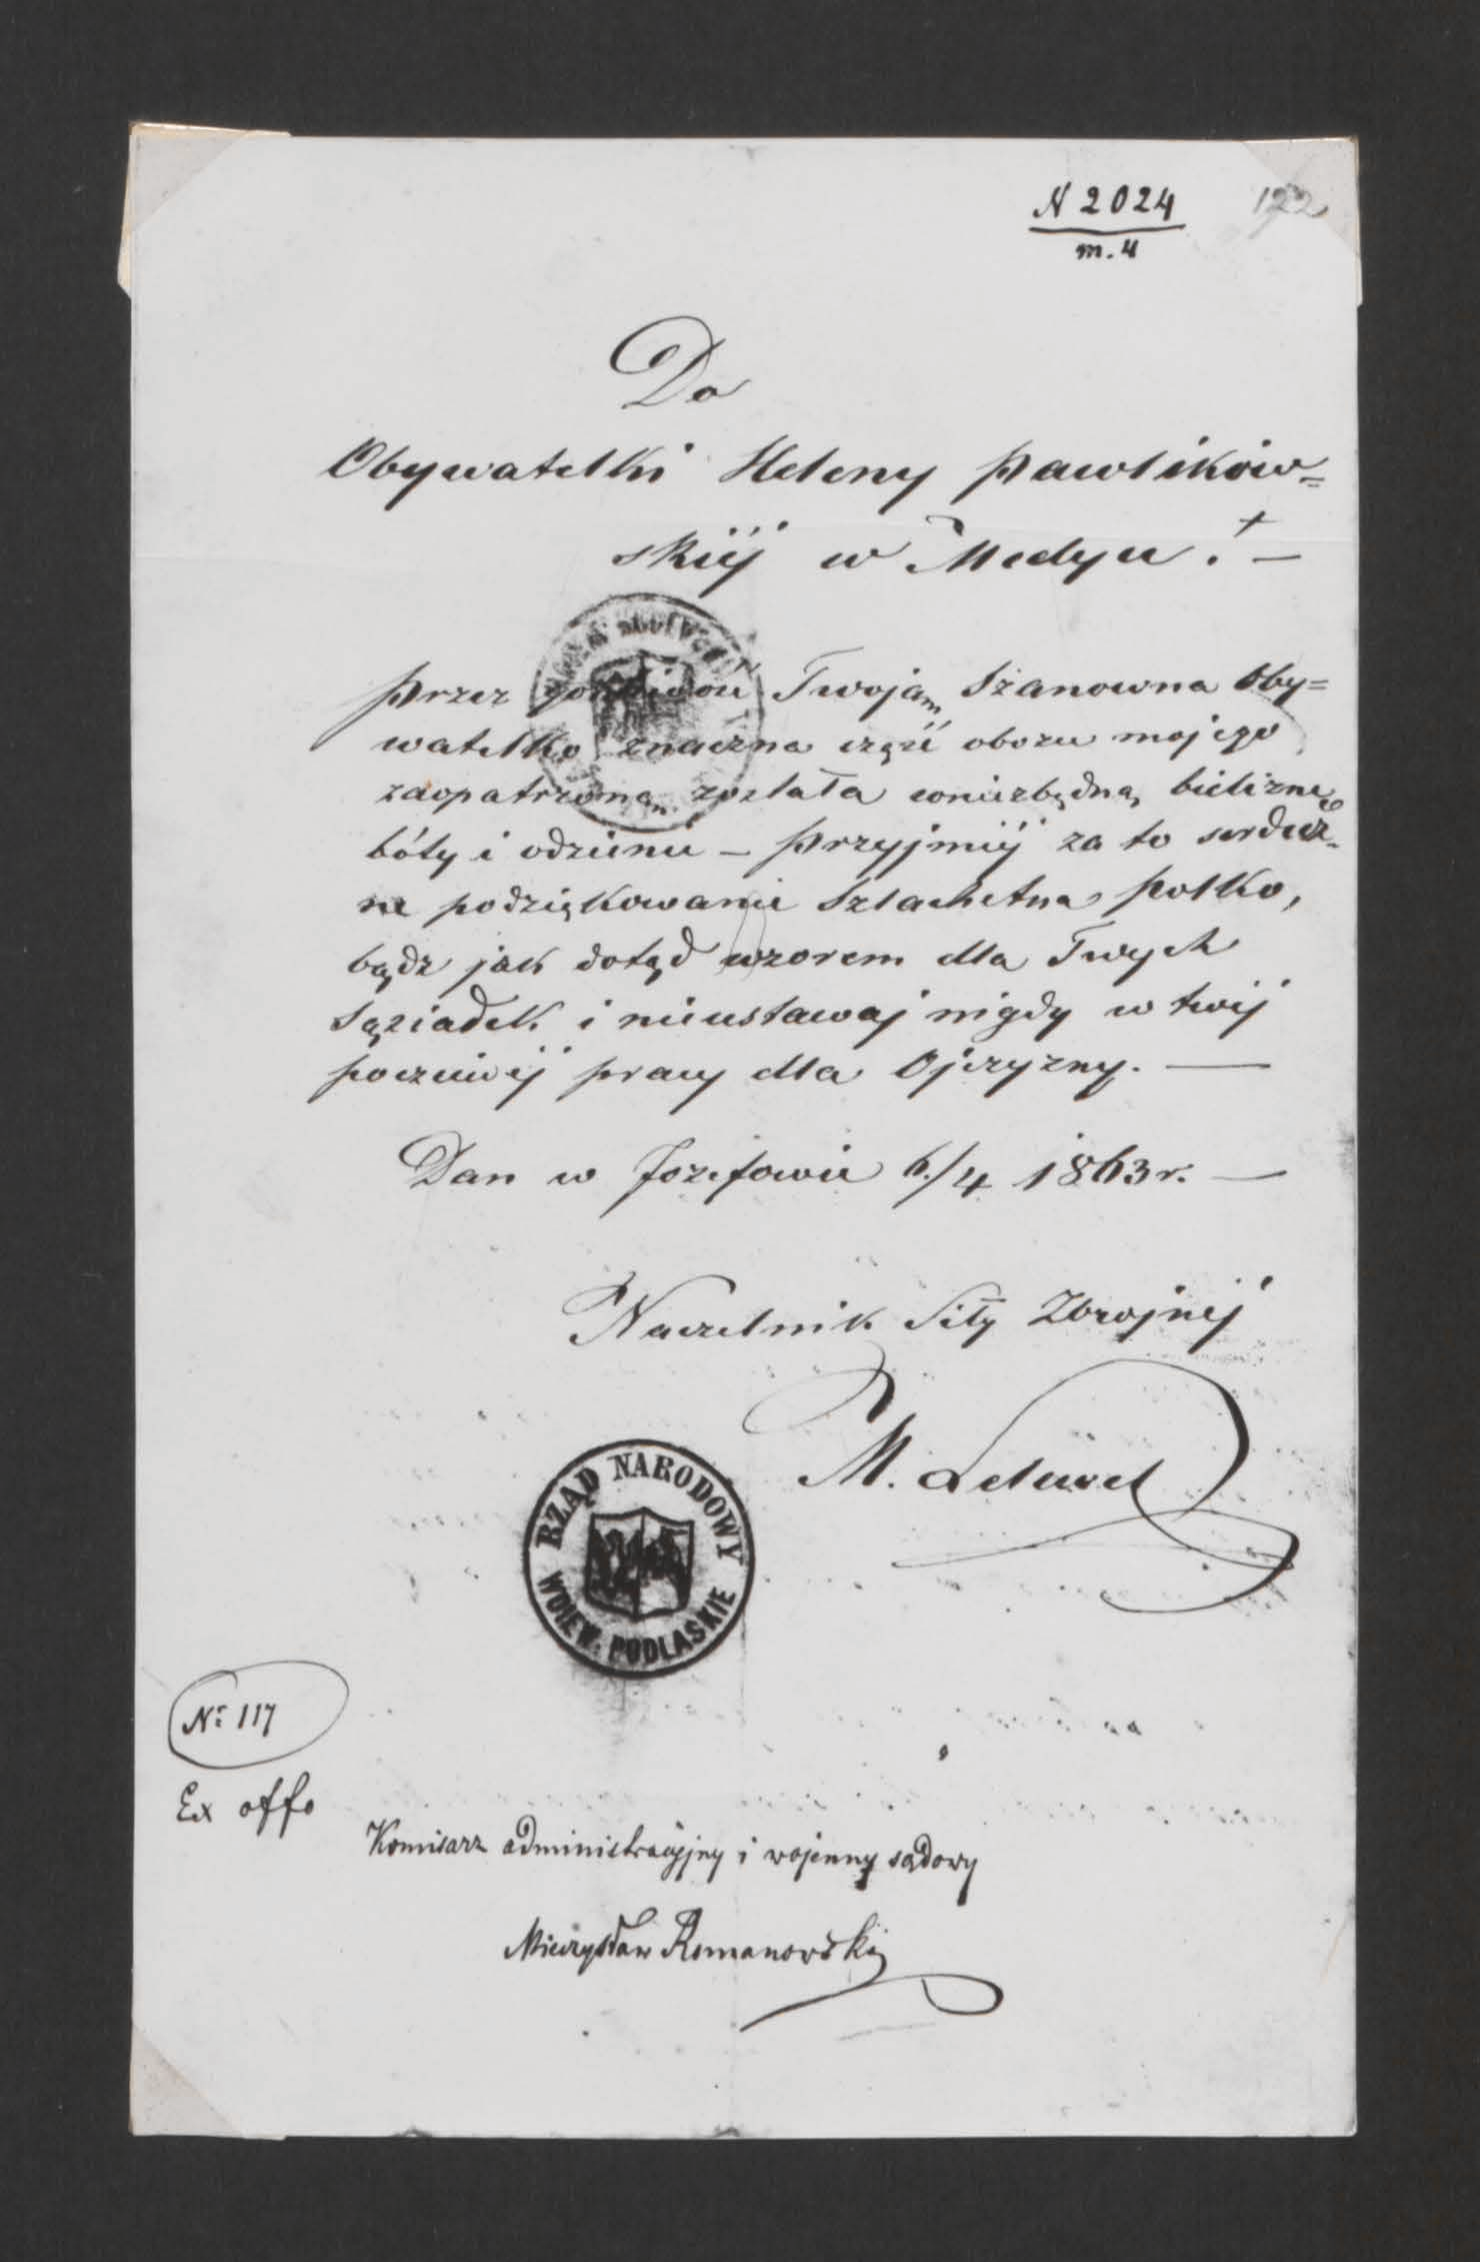 N 2024
m. 4
122
Do
Obywatelki Heleny Pawlików=
skiéj w Medyce ! —
Przez gorliwość Twoją Szanowna Oby=
watelko znaczna część obozu mojego
zaopatrzoną została w niezbędną bieliznę
bóty i odzienie – Przyjmiéj za to serdecz-
ne podziękowanie Szlachetna Polko,
bądz jak dotąd wzorem dla Twych
Sąsiadek i nieustawaj nigdy w twéj
poczciwéj pracy dla Ojczyzny. —
Dan w Jozefowie 6./4 1863 r. —
Naczelnik Siły Zbrojnéj
M. Lelewel
RZĄD NARODOWY
WOIEW. PODLASKIE
Nr 117
Ex offo
Komisarz administracyjny i wojenny sądowy
Mieczysław Romanowski